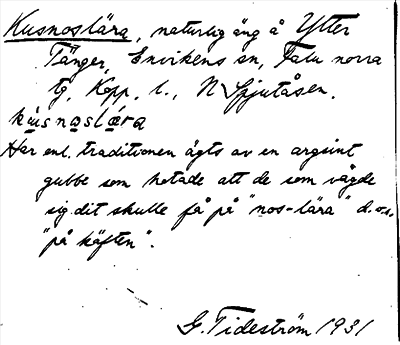 Kusnoslära, naturlig äng å Ytter
Tänger, Envikens sn, Falu norra
tg, Kopp. l., N Sjutåsen.
kusnoslära
Har enl. traditionen ägts av en argsint
gubbe som hotade att de som vågde
sig dit skulle få på "nos-lära" d.v.s.
"på käften".
G. Tideström 1931